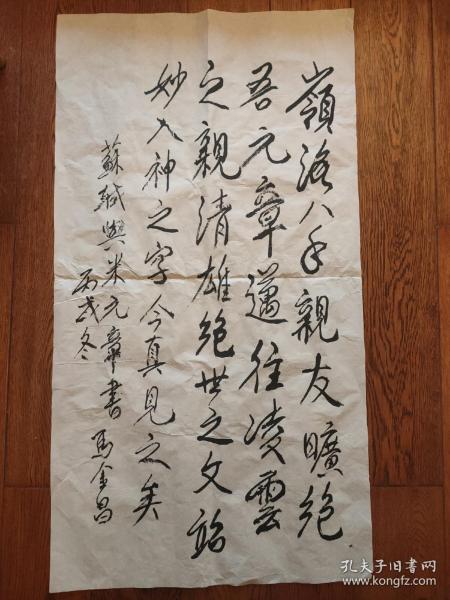 嶺海八年親友曠絕
吾元章邁往凌雲
之親清雄絕世之文
妙入神之字今真見之矣
蘇軾與米元章書 馬金昌
丙戌冬
孔夫子旧书网
www.kongfz.com